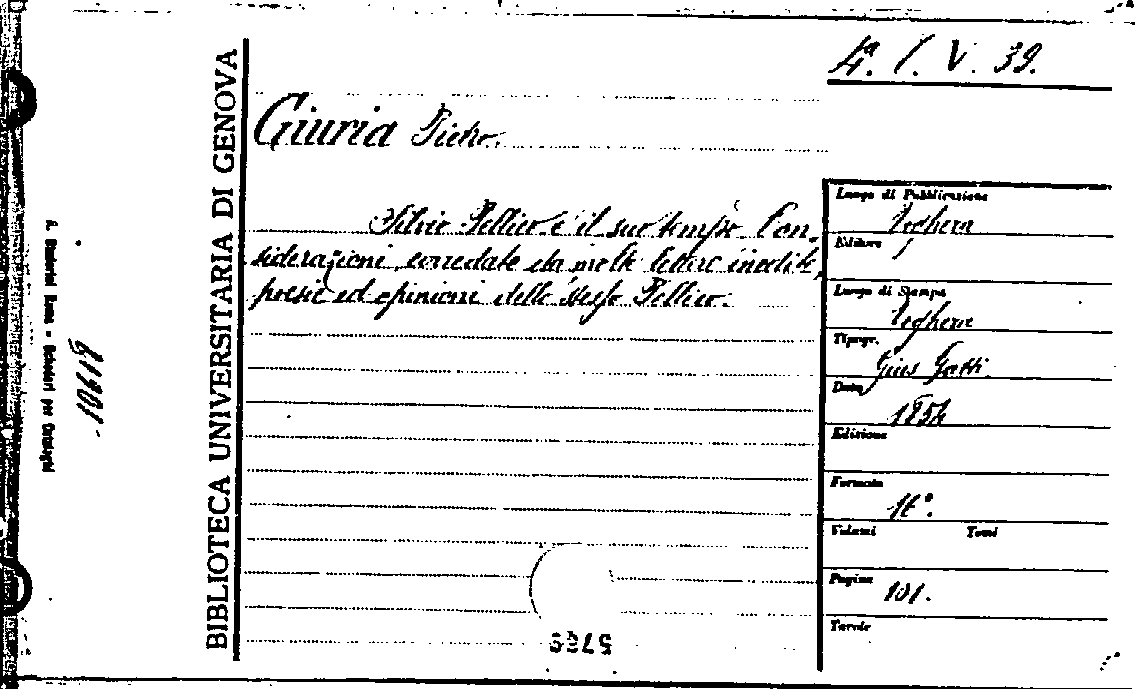 4ª. I. V. 39.
BIBLIOTECA UNIVERSITARIA DI GENOVA
Giuria Pietro.
Silvio Pellico e il suo tempo. Con-
siderazioni, corredate da molte lettere inedite,
poesie ed opinioni dello stesso Pellico.
Luogo di Pubblicazione
Voghera
Editore
Luogo di Stampa
Voghera
Tipogr.
Gius Gatti.
Data
1854
Edizione
Formato
16°.
Volumi Tomi
Pagine
101.
Tavole
Roma - Schedari per Cataloghi